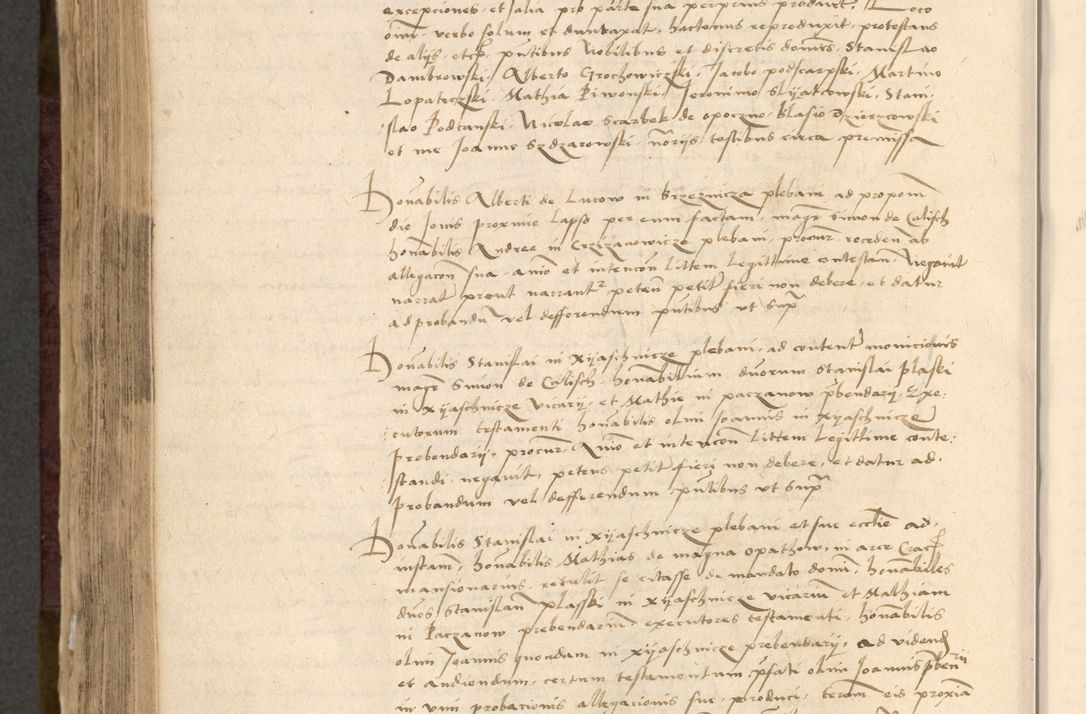 excepciones et Jalia pro parte sua perprius producit Loco
omni verbo solum et duntaxat hactenus reproduxit protestans
de alijs etc. pntibus Nobilibus et discretis dominis Stanislao
Dambrowski Alberto Grochowiczski Jacobo podscarpski Martino
Lopateczski Mathia Piwonski Jeronimo Slyatkowski Stani
slao Podcanski Nicolao Scarbek de opoczno Blasio Dzierzcowski
et me Joanne Szdzarowski noriis testibus circa premissa
Honabilis Alberti de Lucow in Brzeznicza plebani ad propom
die Jouis proxime Lapso per eum factam magr Simon de Calisch
honabilis Andree in Crzizanowicze plebani procur receden ab
allegacon sua animo et intencon Littem Legittime contestan Negauit
narrat prout narrantr peten petitr fieri non debere et datur
ad probandu vel defferendum pntibus vt Supra
Honabilis Stanislai in Xyaschnicze plebani ad content monicionis
magr Simon de Calisch honabilium duorum Stanislai Plaski
in Xyaschnicze vicarij et Mathie in paczanow pbendarij Exe
cutorum testamenti honabilis olim Joannis in Xyaschnicze
Prebendarij procur Animo et intencon Littem Legittime conte
standi negauit petens petitr fieri non debere et datur ad
Probandum vel defferendum pntibus vt Supra
Honabilis Stanislai in Xyaschnicze plebani et sue ecclie ad
instam honabilis Mathias de magna opathow in arce Crac
mansionarius retulit se citasse de mandato domini honabiles
duos Stanislau Plasski in Xyaschnicze vicariu et Mathiam
in Paczanow prebendarium executores testamenti honabilis
olim Joannis quondam in Xyaschnicze prebendarij ad vidend
et audiendum certum testamentum pfati olim Joannis pbenrii
in vim probacionis allegacionis sue produci teram eis proxia